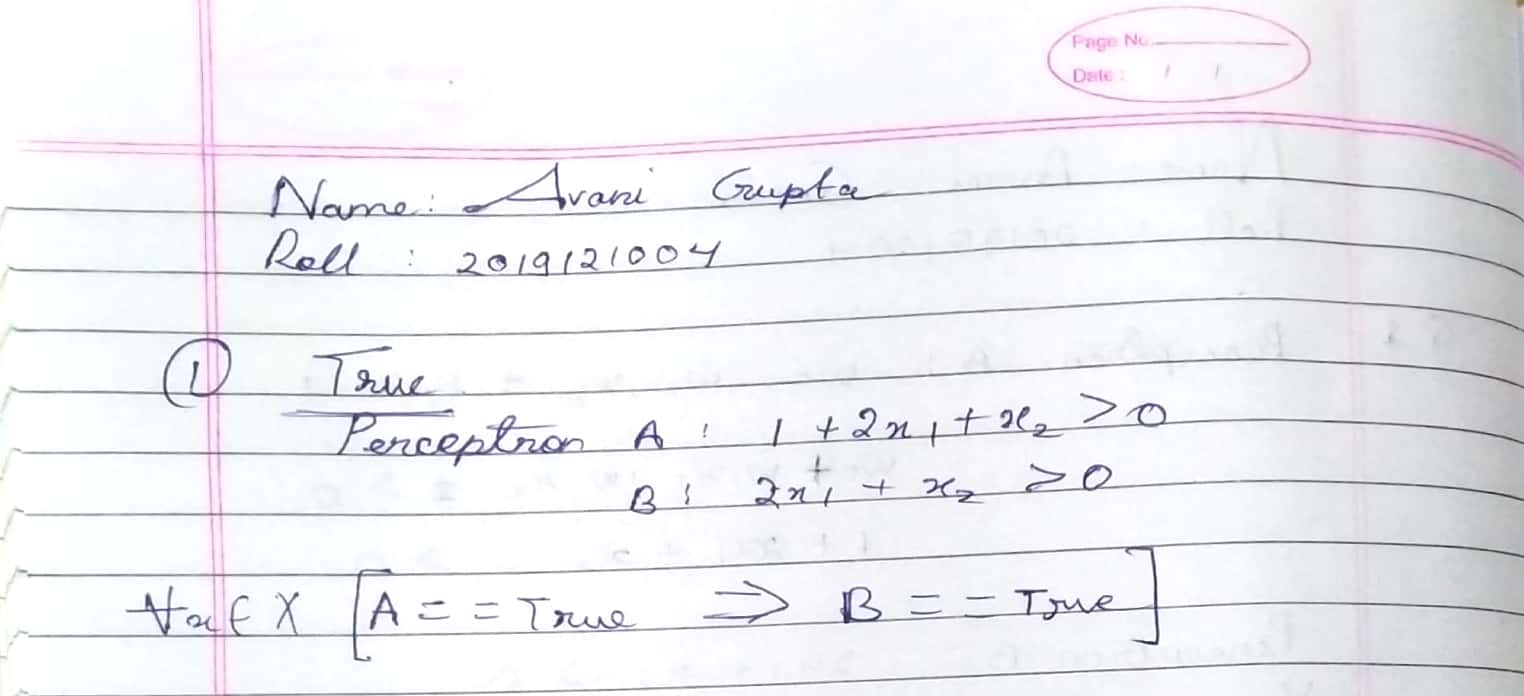 Page No.
Date : / /
Name: Avani Gupta
Roll : 2019121004
① True
Perceptron A : 1 + 2x₁ + x₂ > 0
B : 2x₁ + x₂ > 0
∀x ∈ X [A == True ⇒ B == True]